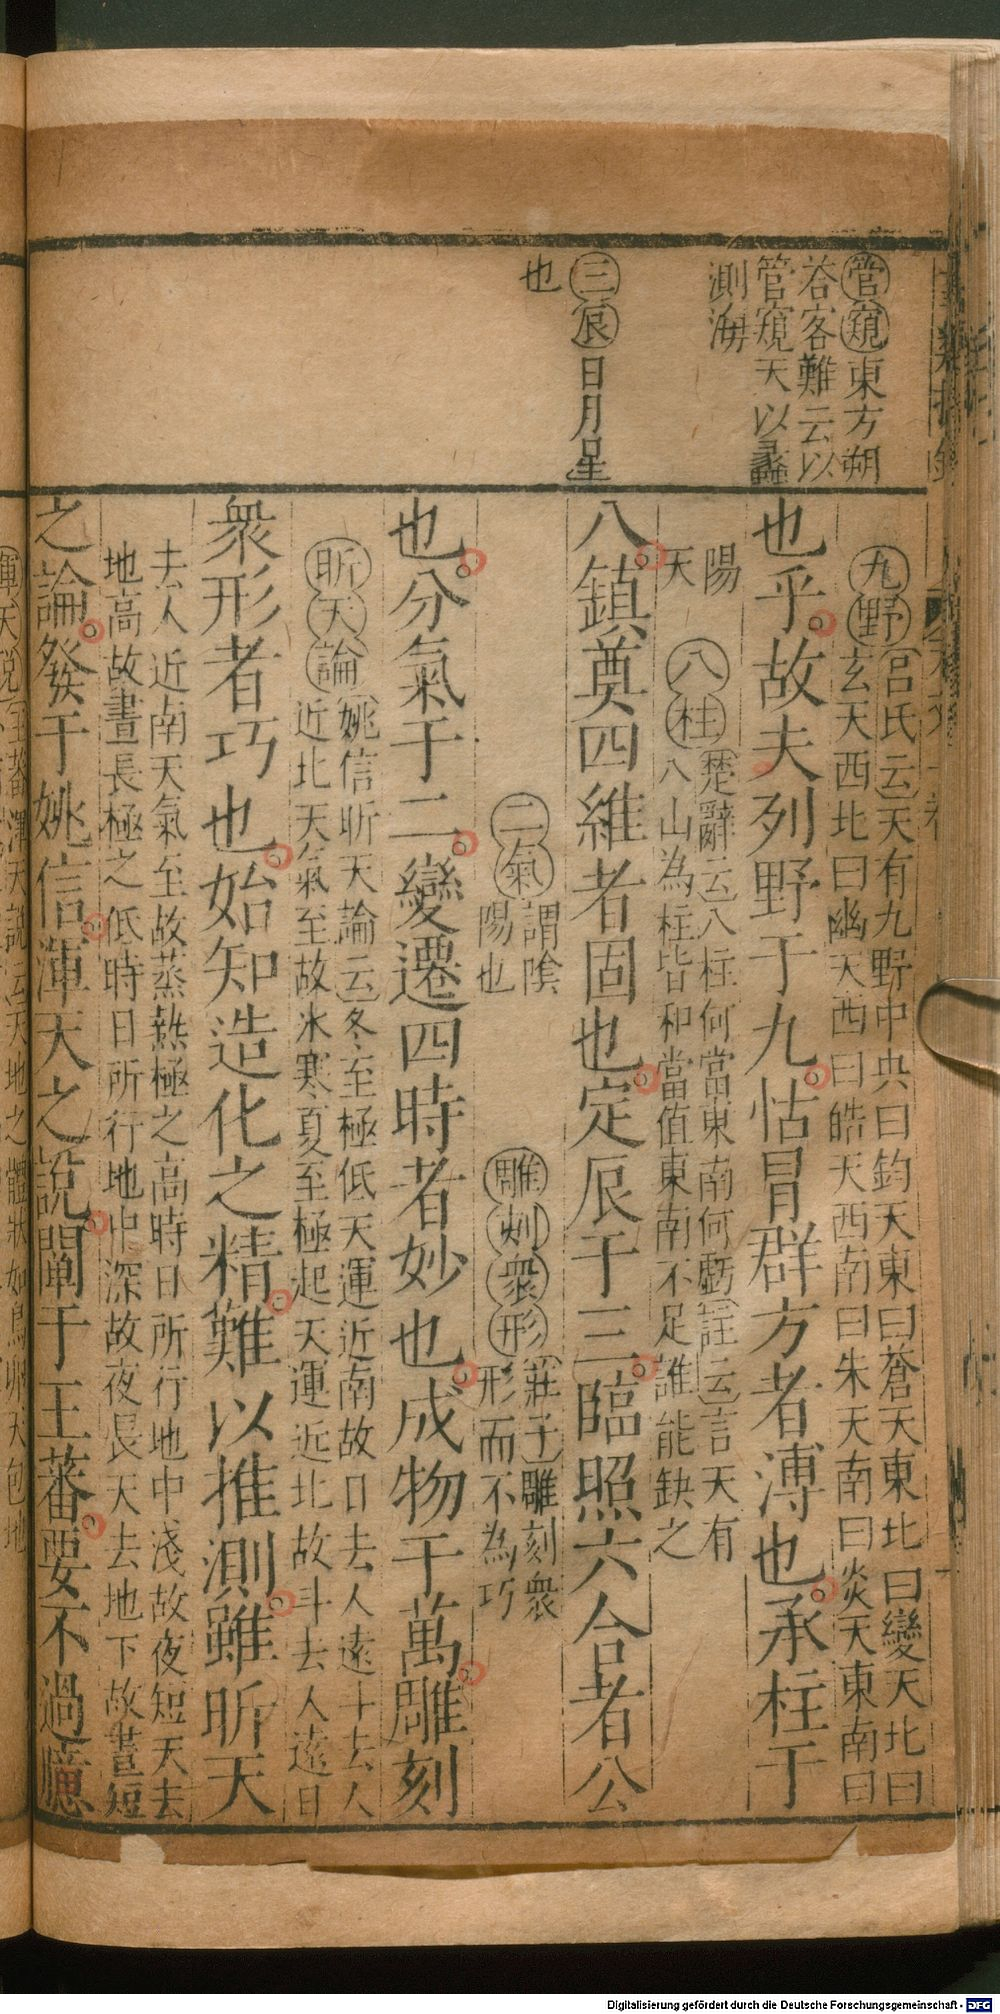 管窺東方朔
答客難云以
管窺天以蠡
測海
三辰日月星
也
九野呂氏云天有九野中央曰鈞天東曰蒼天東北曰變天北曰
玄天西北曰幽天西曰皓天西南曰朱天南曰炎天東南曰
也乎故夫列野于九怙冒群方者溥也承柱于
陽
天
八柱楚辭云八柱何當東南何虧註云言天有
八山為柱皆和當值東南不足誰能缺之
八鎮奠四維者固也定辰于三臨照六合者公
二氣謂陰
陽也
雕刻衆形莊子雕刻衆
形而不為巧
也分氣于二變遷四時者妙也成物于萬雕刻
昕天論姚信昕天論云冬至極低天運近南故日去人遠斗去人
近北天氣至故氷寒夏至極起天運近北故斗去人遠日
衆形者巧也始知造化之精難以推測雖昕天
去人近南天氣至故蒸熱極之高時日所行地中淺故夜短天去
地高故晝長極之低時日所行地中深故夜長天去地下故晝短
之論發于姚信渾天之說闡于王蕃要不過臆
渾天說王蕃渾天說云天地之體狀如鳥卵天包地
Digitalisierung gefördert durch die Deutsche Forschungsgemeinschaft - DFG